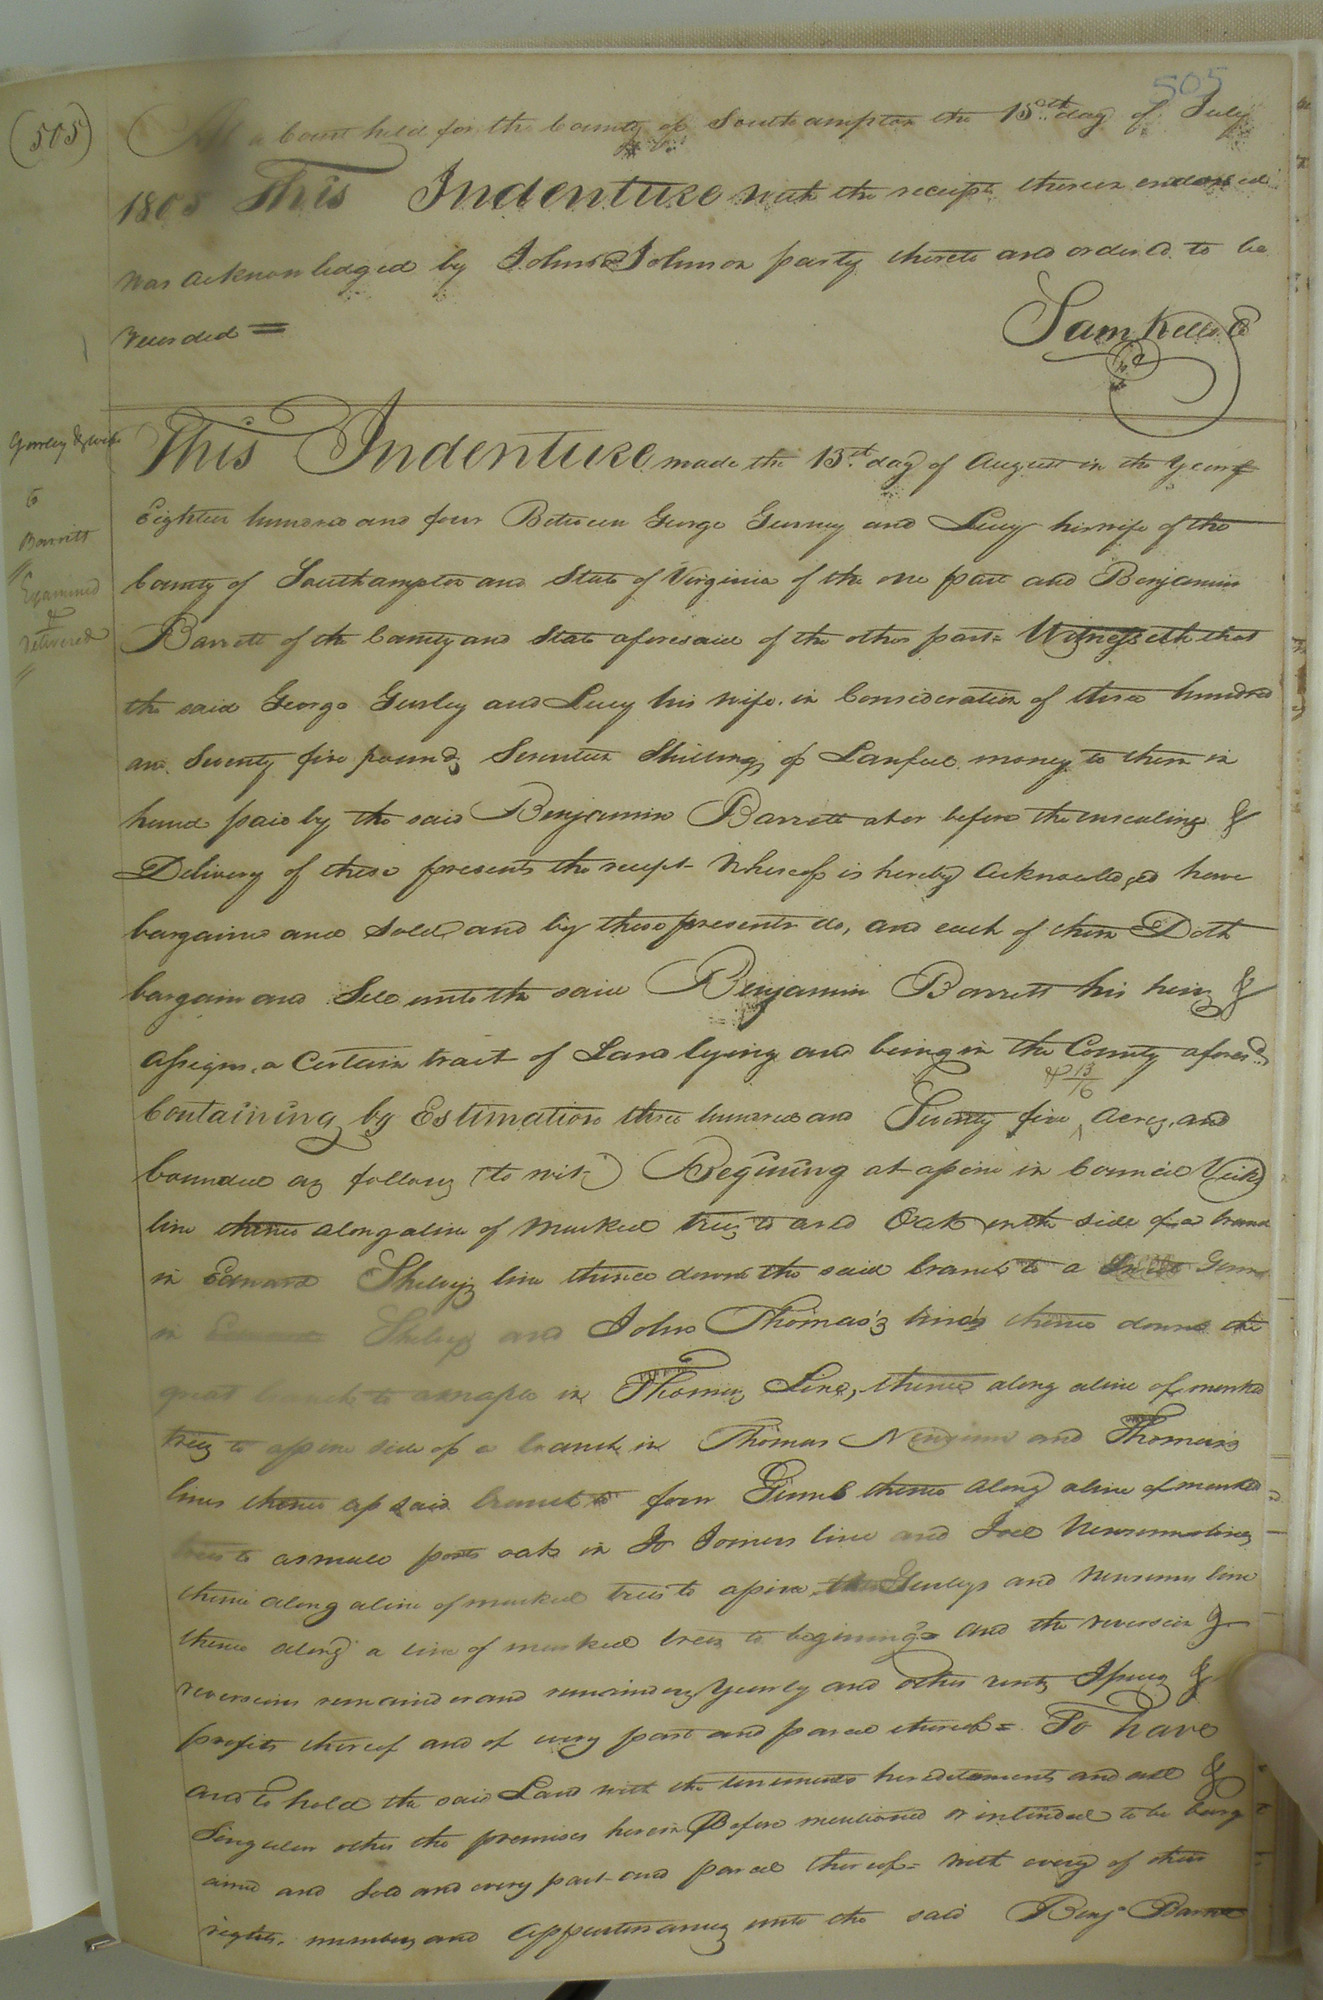 505
(505)
At a Court held for the County of Southampton the 15th day of July
1805 This Indenture with the receipt thereon endorsed
was acknowledged by Johnson party thereto and ordered to be
recorded =
Sam Kello Cl
Gurley & wife
to
Barritt
Examined
&
delivered
This Indenture made the 13st day of August in the Year of
Eighteen hundred and four Between George Gurney and Lucy his wife of the
County of Southampton and State of Virginia of the one part and Benjamin
Barrett of the County and State aforesaid of the other part = Witnesseth that
the said George Gurley and Lucy his wife in Consideration of three hundred
and Seventy five pounds Seventeen Shillings of Lawful money to them in
hand paid by the said Benjamin Barrett at or before the ensealing &
Delivery of these presents the receipt Whereof is hereby Acknowledged have
bargained and Sold and by these presents do, and each of them Doth
bargain and Sell unto the said Benjamin Barrett his heirs &
assigns, a Certain tract of Land lying and being in the County afores.d
& 13/16
Containing by Estimation three hundred and Seventy five ^ Acres, and
bounded as follows (to wit) Begining at a pine in Council
line thence along a line of Marked trees to a red Oak on the side of a branch
in Edward Shelvys line thence down the said branch to a Gum
in Shelvys and John Thomas's lines thence down the
great branch to a maple in Thomas Line, thence along a line of marked
trees to a pine side of a branch in Thomas and Thomas's
lines thence up said branch to four Gums thence along a line of marked
trees to a small post oak in Jo Joiners line and Joel Newsums lines
thence along a line of marked trees to a pine Gurleys and Newsums line
thence along a line of marked trees to begining = and the reversion &
reversions remainder and remainders Yearly and other rents Issues &
profits thereof and of every part and parcel thereof = To have
and to hold the said Land with the tenements hereditaments and all &
Singular other the premises herein Before mentioned or intended to be barg
ained and Sold and every part and parcel thereof = with every of their
rights, members, and appurtenances unto the said Benja Barrett